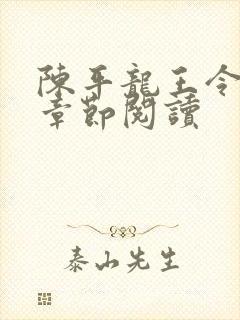 陳平龍王令
章節閱讀
泰山先生